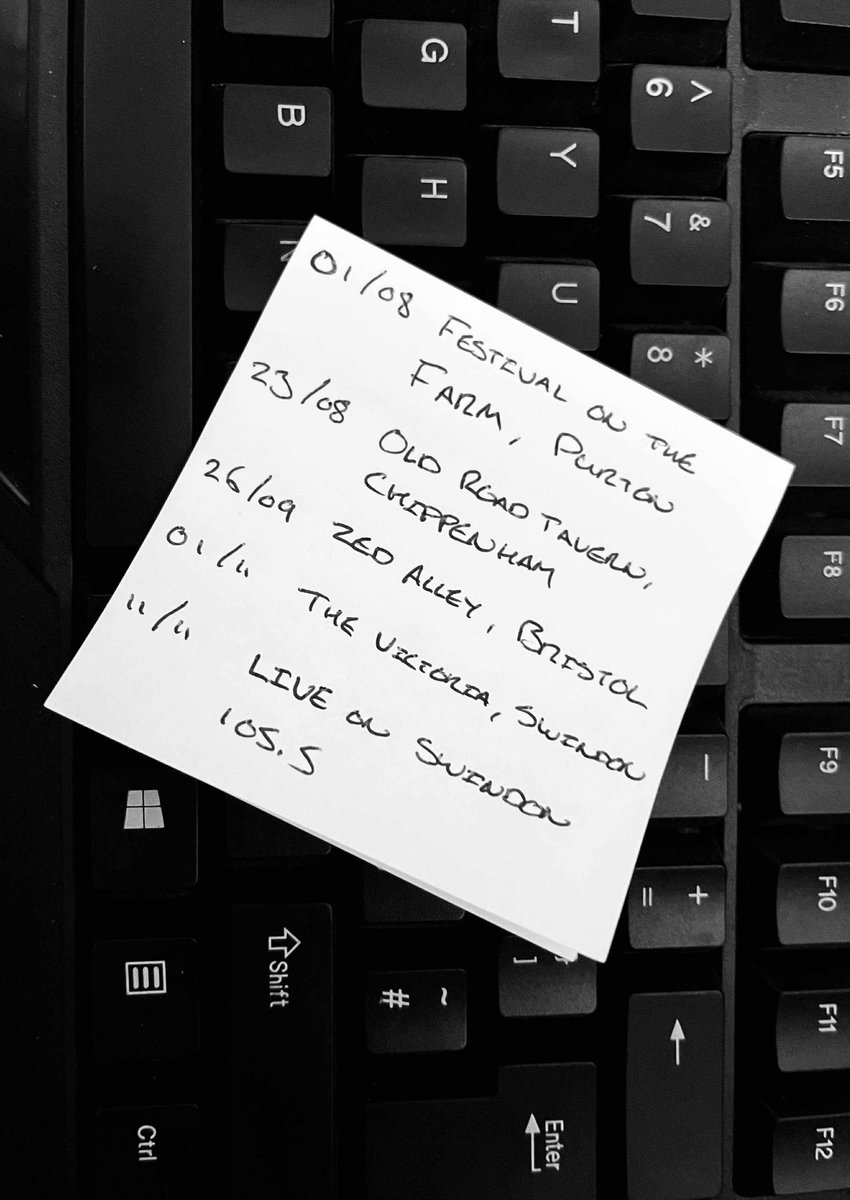 01/08 FESTIVAL ON THE
FARM, PURTON
23/08 OLD ROAD TAVERN,
CHIPPENHAM
26/09 ZED ALLEY, BRISTOL
01/11 THE VICTORIA, SWINDON
11/11 LIVE ON SWINDON
105.5
T
G
B
^
6
Y
H
F5
&
7
U
N
F6
*
8
F7
F8
-
F9
+
=
F10
]
Shift
~
#
F11
Enter
Ctrl
F12